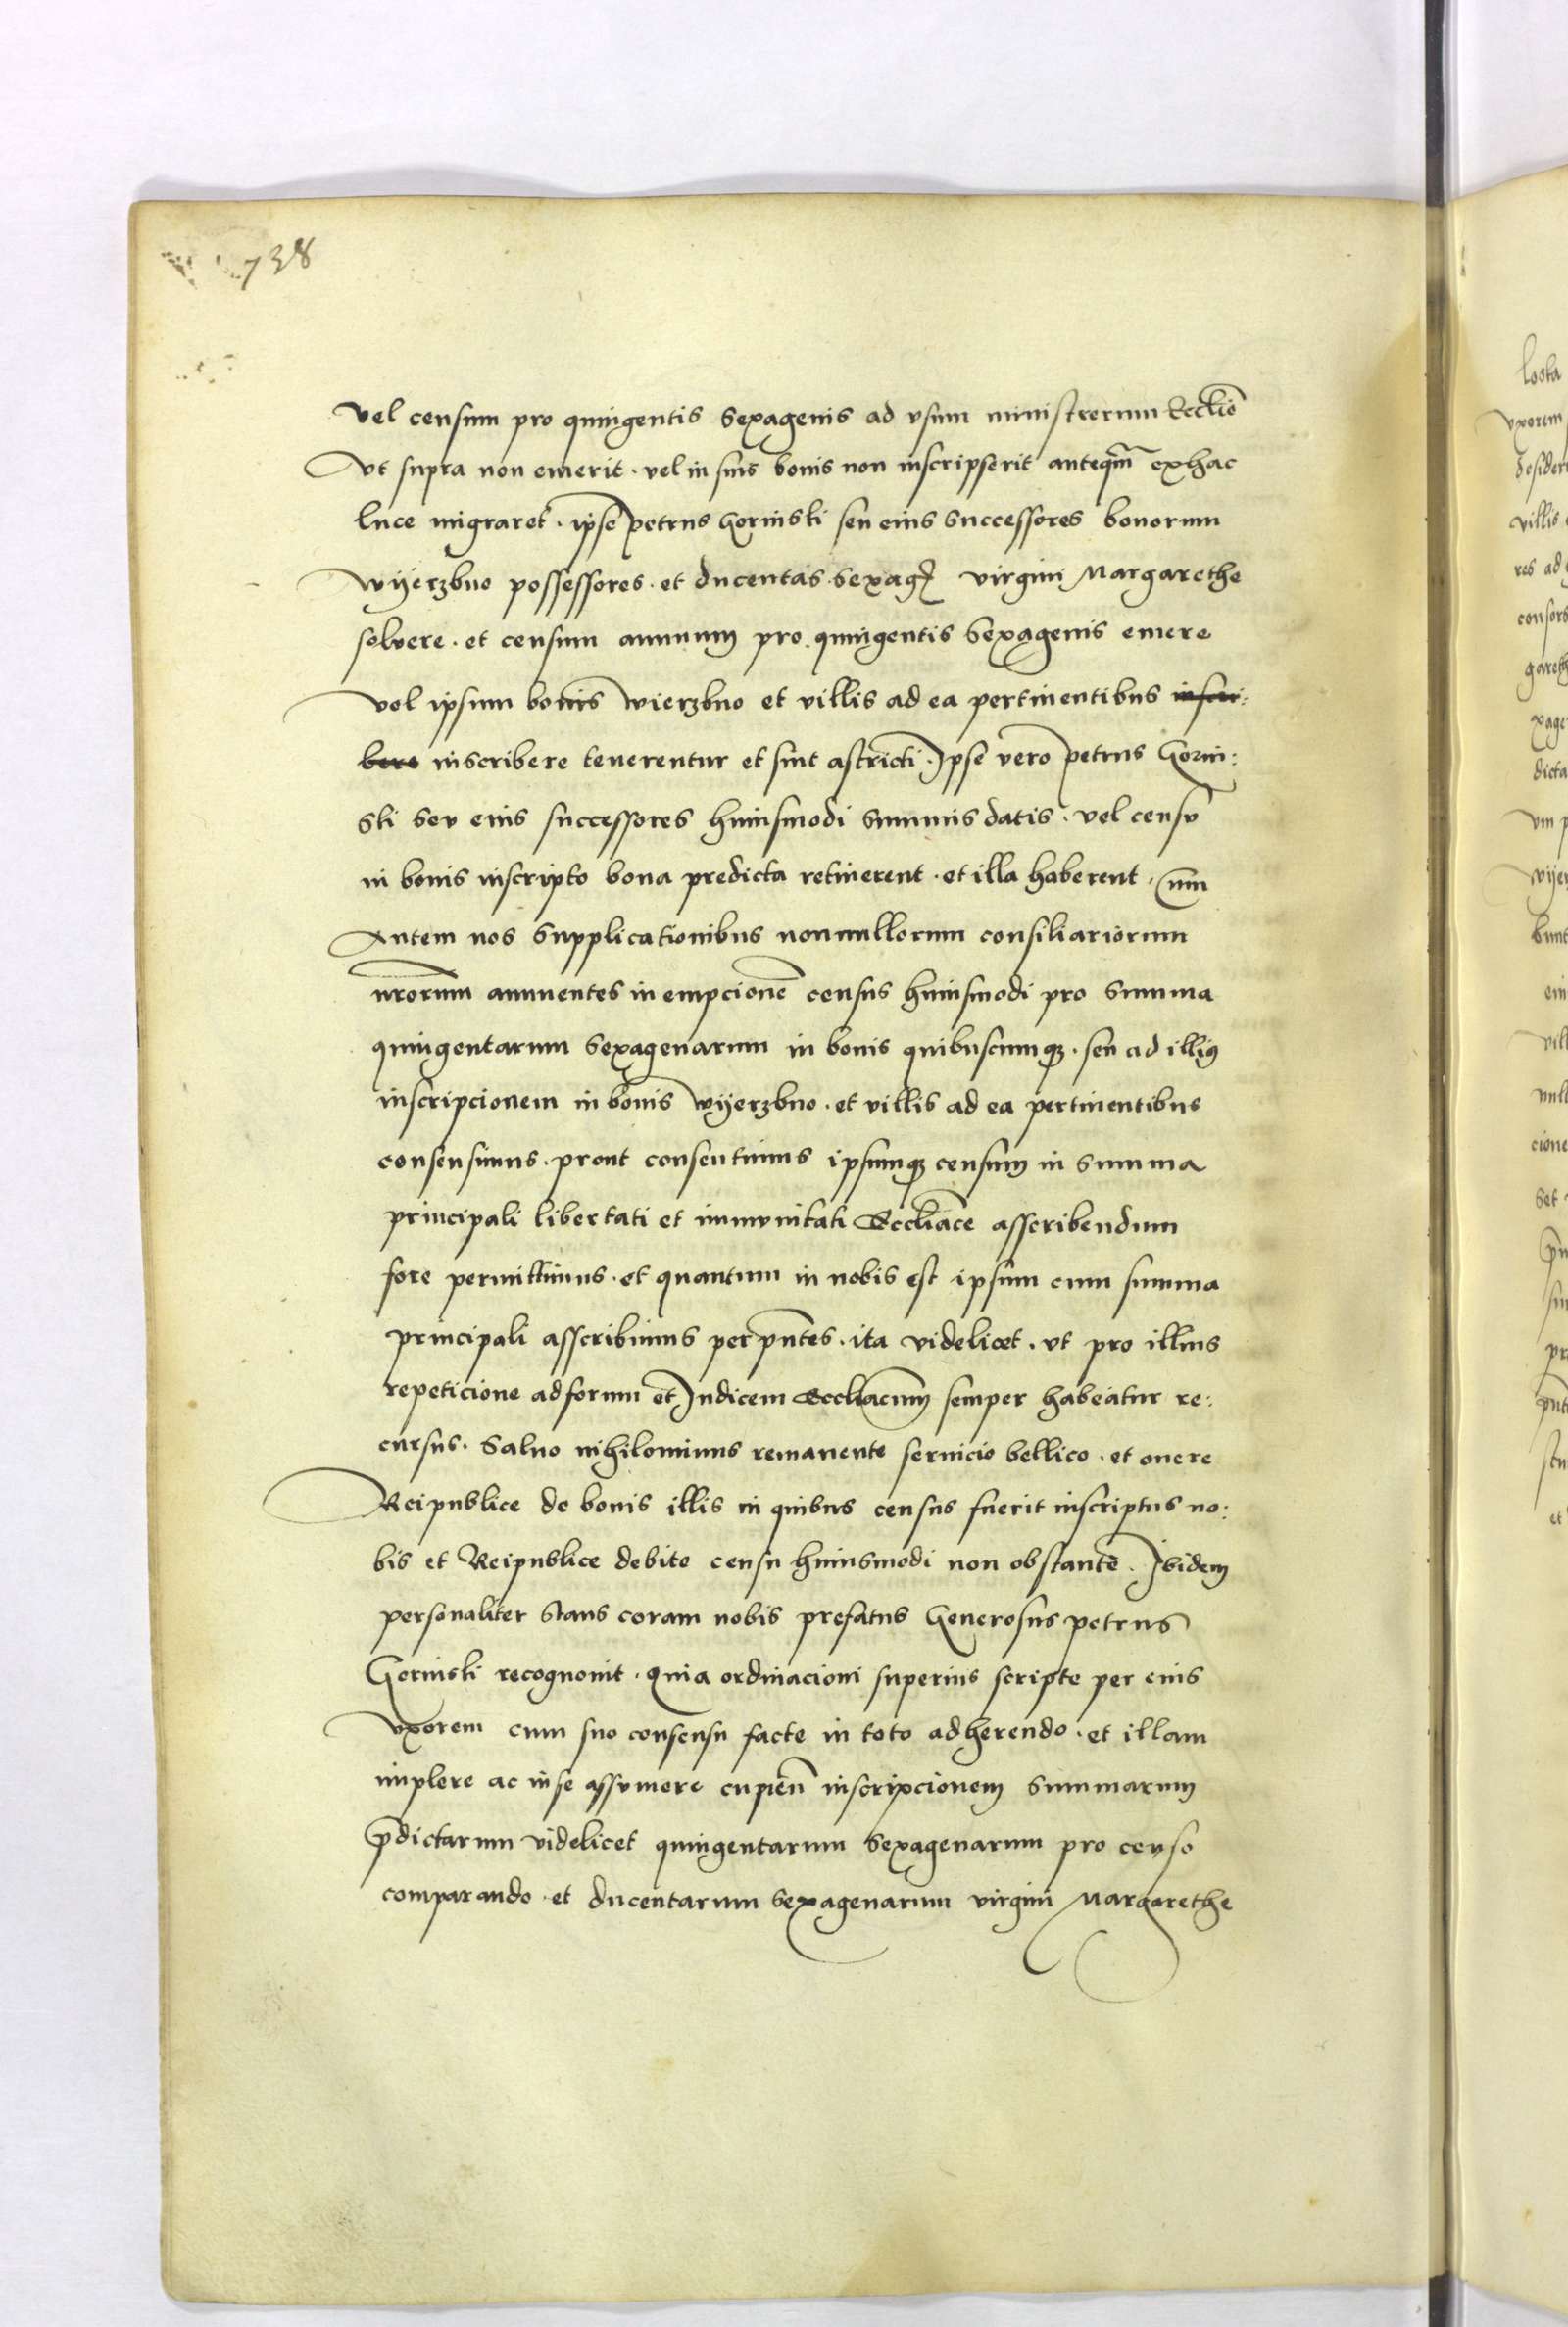 738
vel censum pro quingentis sexagenis ad vsum ministrorum Ecclie
Vt supra non emerit. vel in suis bonis non inscripserit anteqm ex hac
luce migraret. ipse petrus Gorinski seu eius successores bonorum
Wyerzbno possessores. et ducentas sexag virgini Margarethe
solvere. et censum annuum pro quingentis sexagenis emere
vel ipsum bonis Wierzbno et villis ad ea pertinentibus inscri:
bere inscribere tenerentur et sint astricti. Ipse vero petrus Gorin:
ski sev eius successores huiusmodi summis datis. vel censv
in bonis inscripto bona predicta retinerent. et illa haberent.
Autem nos supplicationibus nonnullorum consiliariorum
nrorum annuentes in empcione census huiusmodi pro summa
quingentarum sexagenarum in bonis quibuscumq. seu ad illius
inscripcionem in bonis Wyerzbno. et villis ad ea pertinentibus
consensimus. prout consentimus ipsumq censum in summa
principali libertati et immvnitati Eccliace asscribendum
fore permittimus. et quantum in nobis est ipsum cum summa
principali asscribimus per pntes. ita videlicet. vt pro illius
repeticione ad forum et Iudicem Eccliacum semper habeatur re:
cursus. Saluo nihilominus remanente seruicio bellico. et onere
Reipublice de bonis illis in quibus census fuerit inscriptus no:
bis et Reipublice debito censu huiusmodi non obstante. Ibidem
personaliter stans coram nobis prefatus Generosus petrus
Gorinski recognouit. quia ordinacioni superius scripte per eius
vxorem cum suo consensu facte in toto adherendo. et illam
implere ac in se assvmere cupien inscripcionem summarum
pdictarum videlicet quingentarum sexagenarum pro censo
comparando. et ducentarum sexagenarum virgini Margarethe